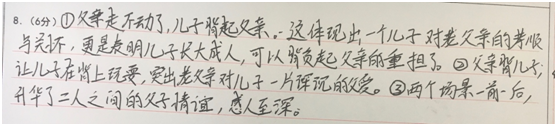 8.(6分)①父亲走不动了,儿子背起父亲.这体现出一个儿子对老父亲的孝顺
与关怀,更是表明儿子长大成人,可以背负起父亲的重担了。②父亲背儿子,
让儿子在背上玩耍,突出老父亲对儿子一片深沉的父爱。③两个场景一前一后,
升华了二人之间的父子情谊,感人至深。